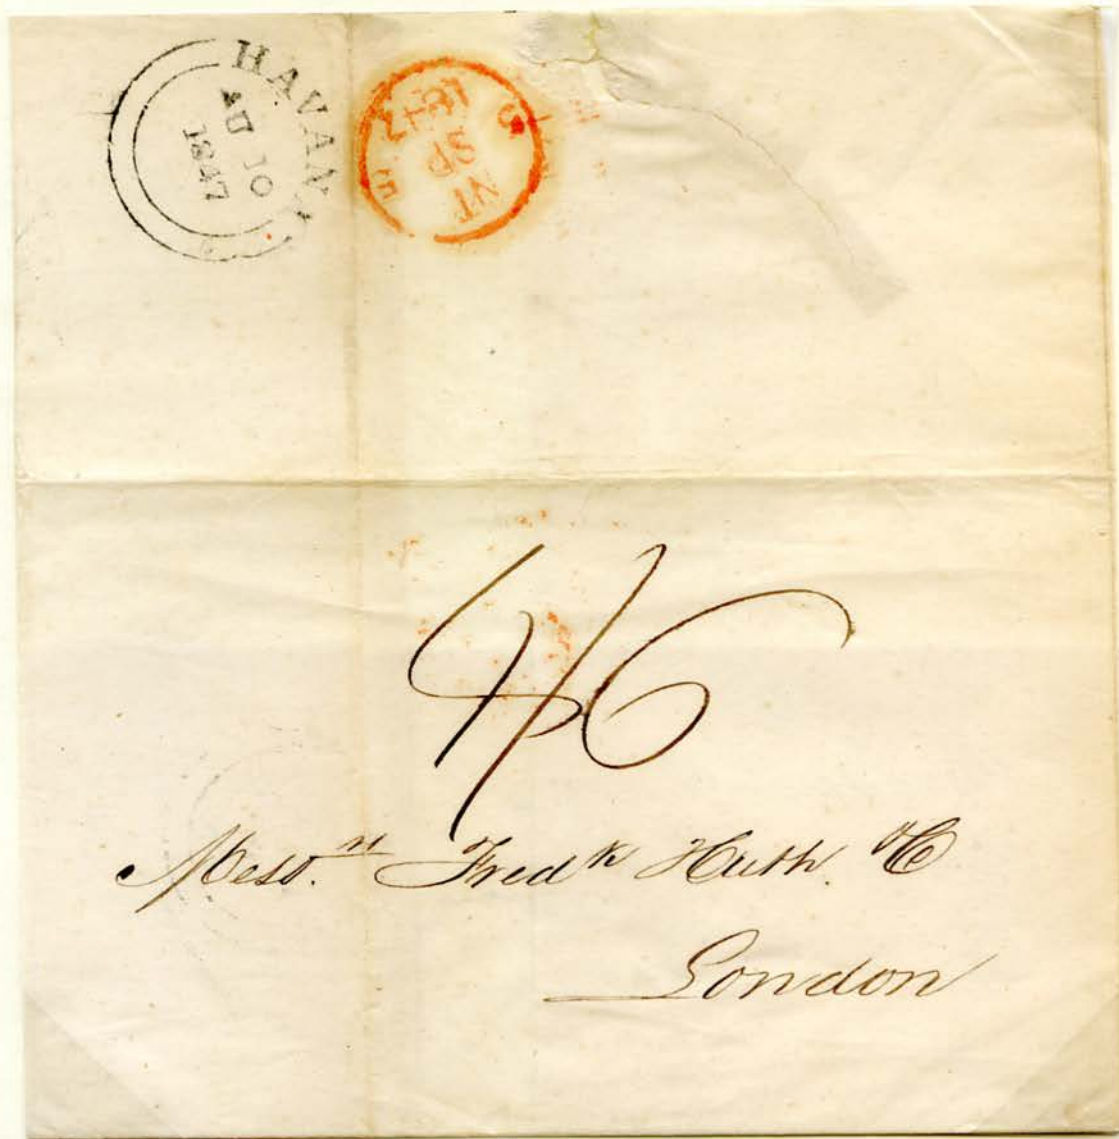 HAVANA
AU 10
1847
SP
1847
4/6
Messrs. Fredk Huth & Co
London